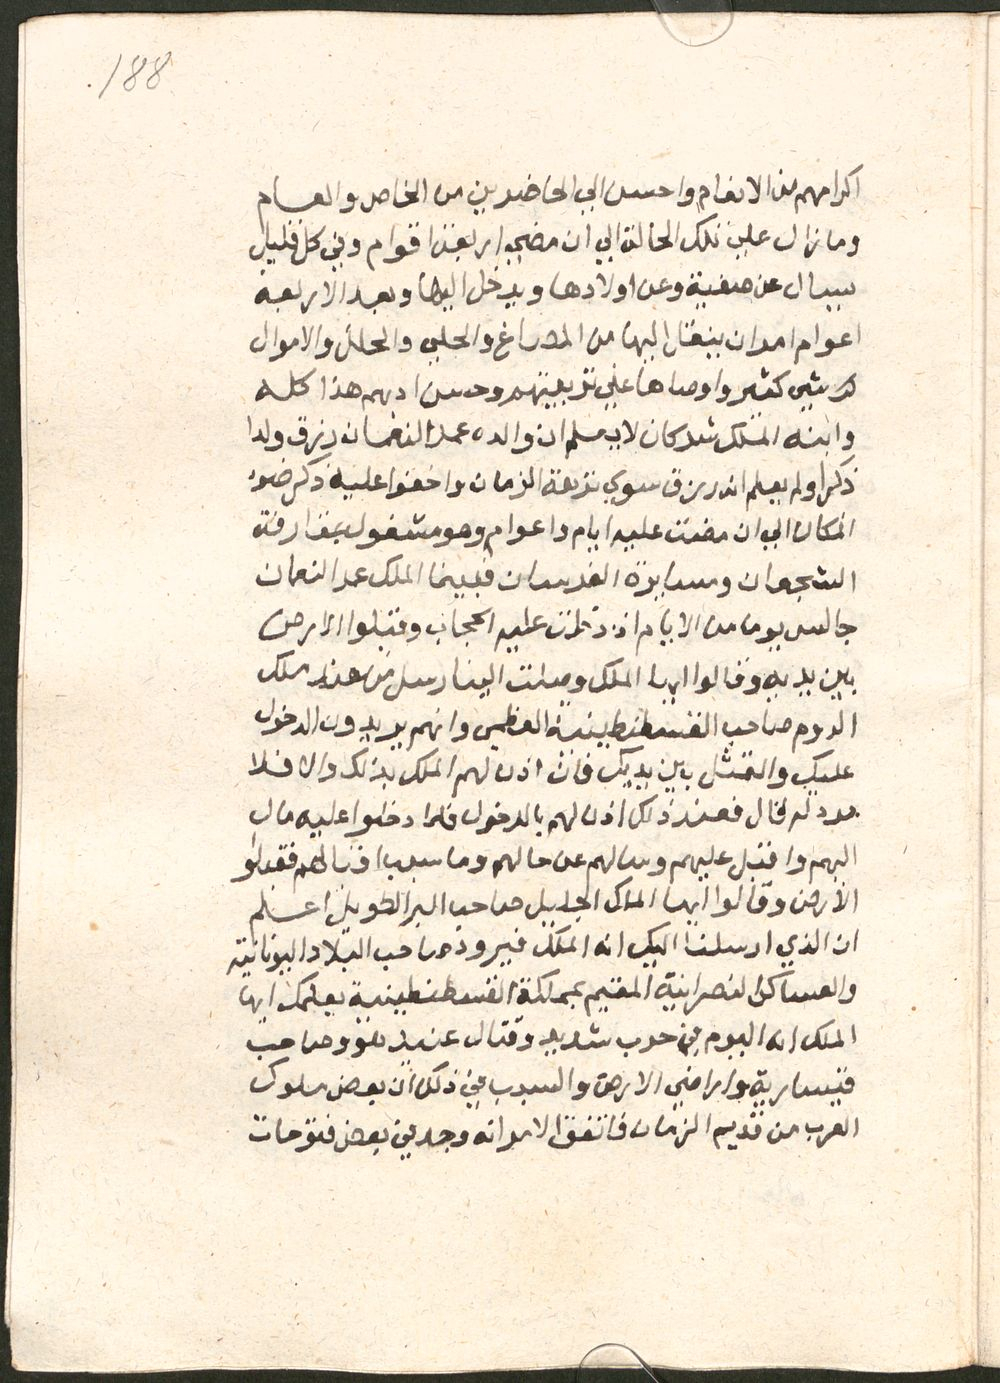 188
اكرامهم من الانعام واحسن الي الحاضرين من الخاص والعام
وما زال علي تلك الحالة الي ان مضي اربعة اقوام وفي كل قليل
يسال عن صفية وعن اولادها ويدخل اليها وبعد الاربعة
اعوام امر ان ينقل اليها من المصاغ والحلي والحلل والاموال
كل شي كثير واوصاها علي تربيتهم وحسن ادبهم هذا كله
وابنه الملك شركان لا يعلم ان والده عمر النعمان رزق ولدا
ذكرا ولم يعلم انه رزق سوي نزهة الزمان واخفوا عليه ذكر ضو
المكان الي ان مضت عليه ايام واعوام وهو مشغول بمقارفة
الشجعان ومبارزة الفرسان فبينما الملك عمر النعمان
جالس يوما من الايام اذ دخلت عليه الحجاب وقبلوا الارض
بين يديه وقالوا ايها الملك وصلت الينا رسل من عند ملك
الروم صاحب القسطنطينية العظمي وانهم يريدون الدخول
عليك والتمثل بين يديك فان اذن لهم الملك بذلك والا فلا
مرد له قال فعند ذلك اذن لهم بالدخول فلما دخلوا عليه مال
اليهم واقبل عليهم وسالهم عن حالهم وما سبب اقبالهم فقبلوا
الارض وقالوا ايها الملك الجليل صاحب البر الطويل اعلم
ان الذي ارسلنا اليك انه الملك فيرود صاحب البلاد اليونانية
والعساكر النصرانية المقيم بمملكة القسطنطينية يعلمك ايها
الملك انه اليوم في حرب شديد وقتال عنيد هو وصاحب
قيسارية واراضي الارض والسبب في ذلك ان بعض ملوك
العرب من قديم الزمان فاتفق الامر انه وجد في بعض فتوحات